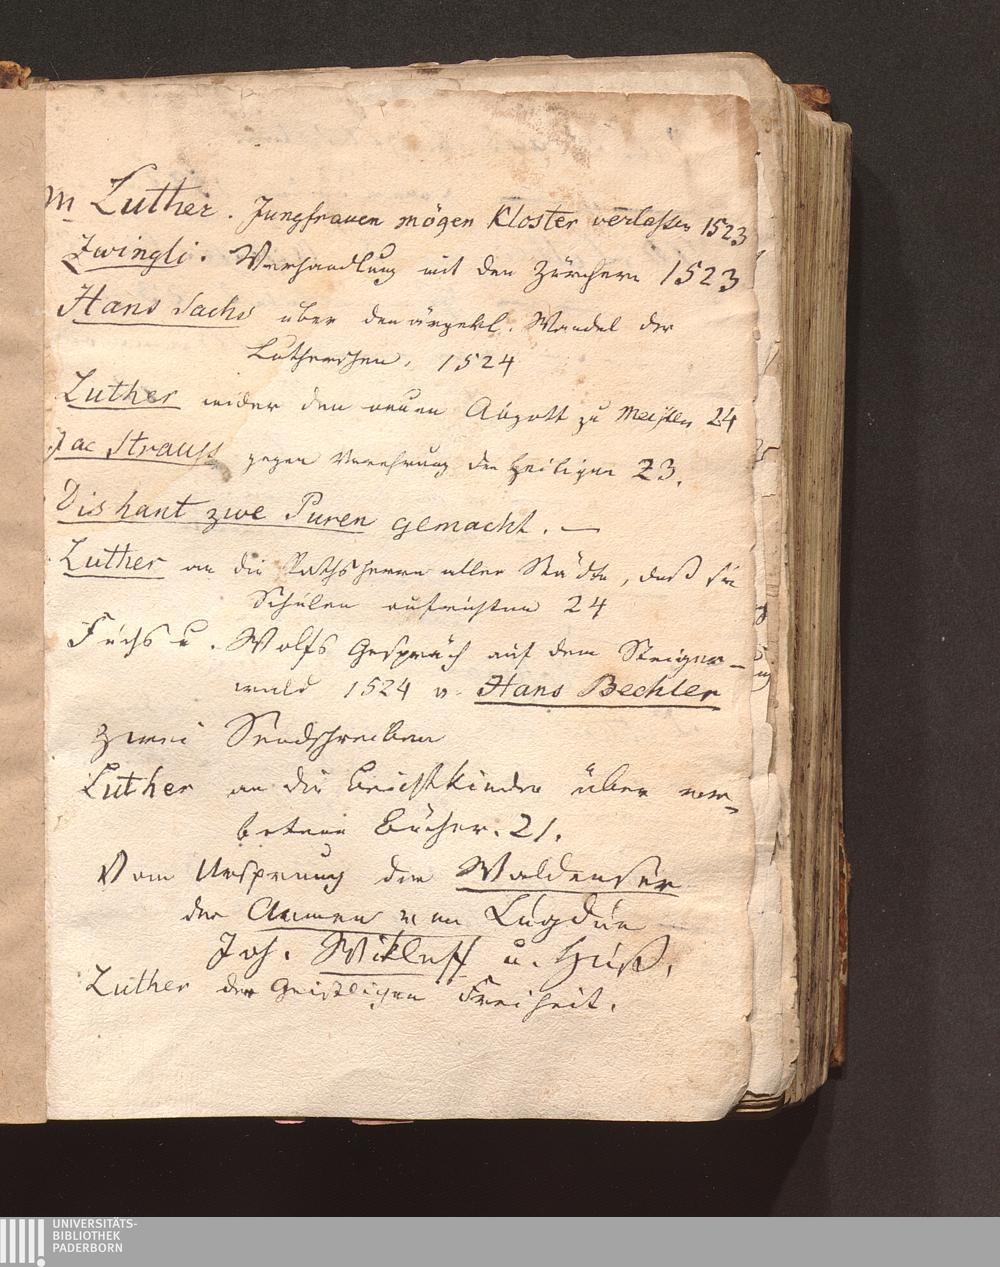 M Luther. Jungfrauen mögen Kloster verlaßen 1523
Zwingli. Verhandlung mit den Zürchern 1523
Hans Sachs über den ärgerl. Wandel der
Lutherschen. 1524
Luther wider den neuen Abgott zu Meißen 24
Jac Strauss gegen Verehrung der Heiligen 23.
Dis hant zwe Puren gemacht. —
Luther an die Rathsherrn aller Städte, daß sie
Schulen aufrichten 24
Fuchs u. Wolfs Gespräch auf dem Steiger-
wald 1524 v. Hans Bechler
Zwei Sendschreiben
Luther an die Beichtkinder über ver-
botene Bücher. 21.
Vom Ursprung der Waldenser
der Armen von Lugdun
Joh. Wikleff u. Huß.
Luther der Geistlichen Freiheit.
UNIVERSITÄTS-
BIBLIOTHEK
PADERBORN